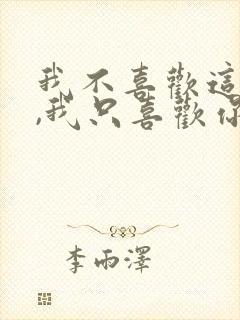 我不喜歡這
,我只喜歡你
李雨澤